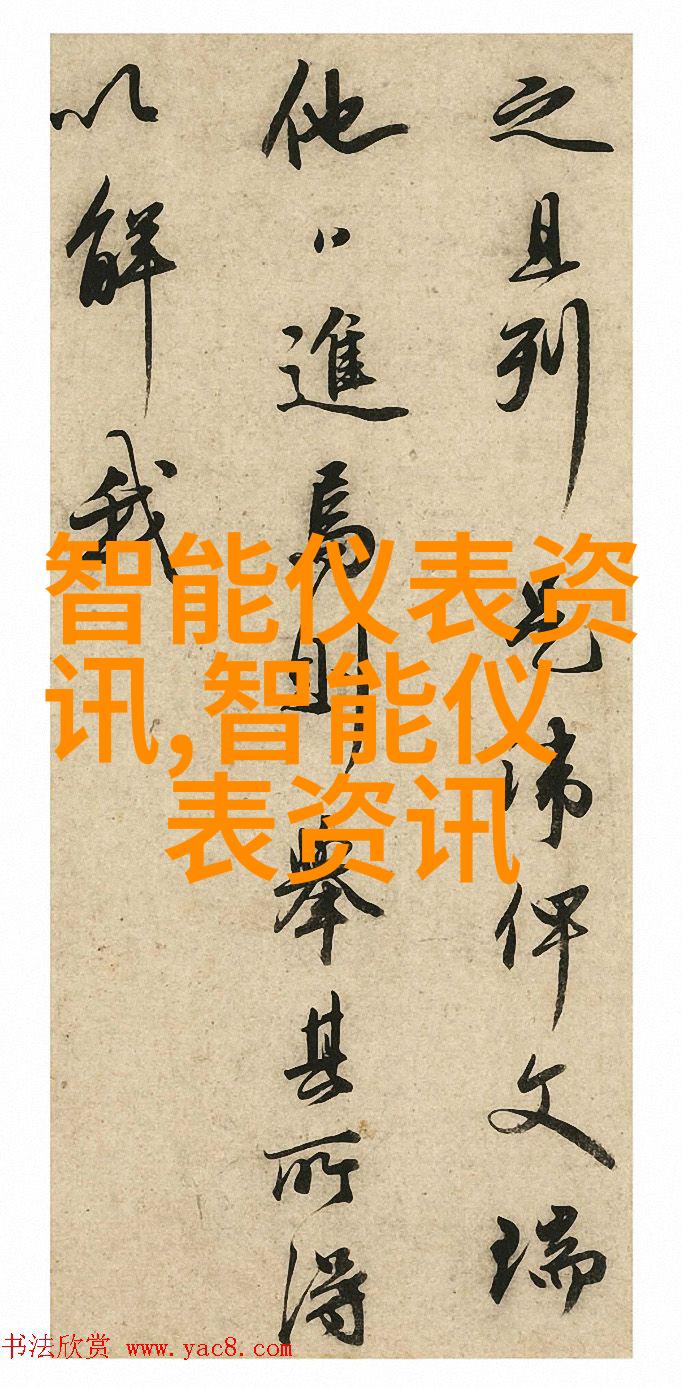 之且列俾文瑞
他々進焉舉其所得
以解我
智能仪表资
讯,智能仪
表资讯
书法欣赏 www.yac8.com